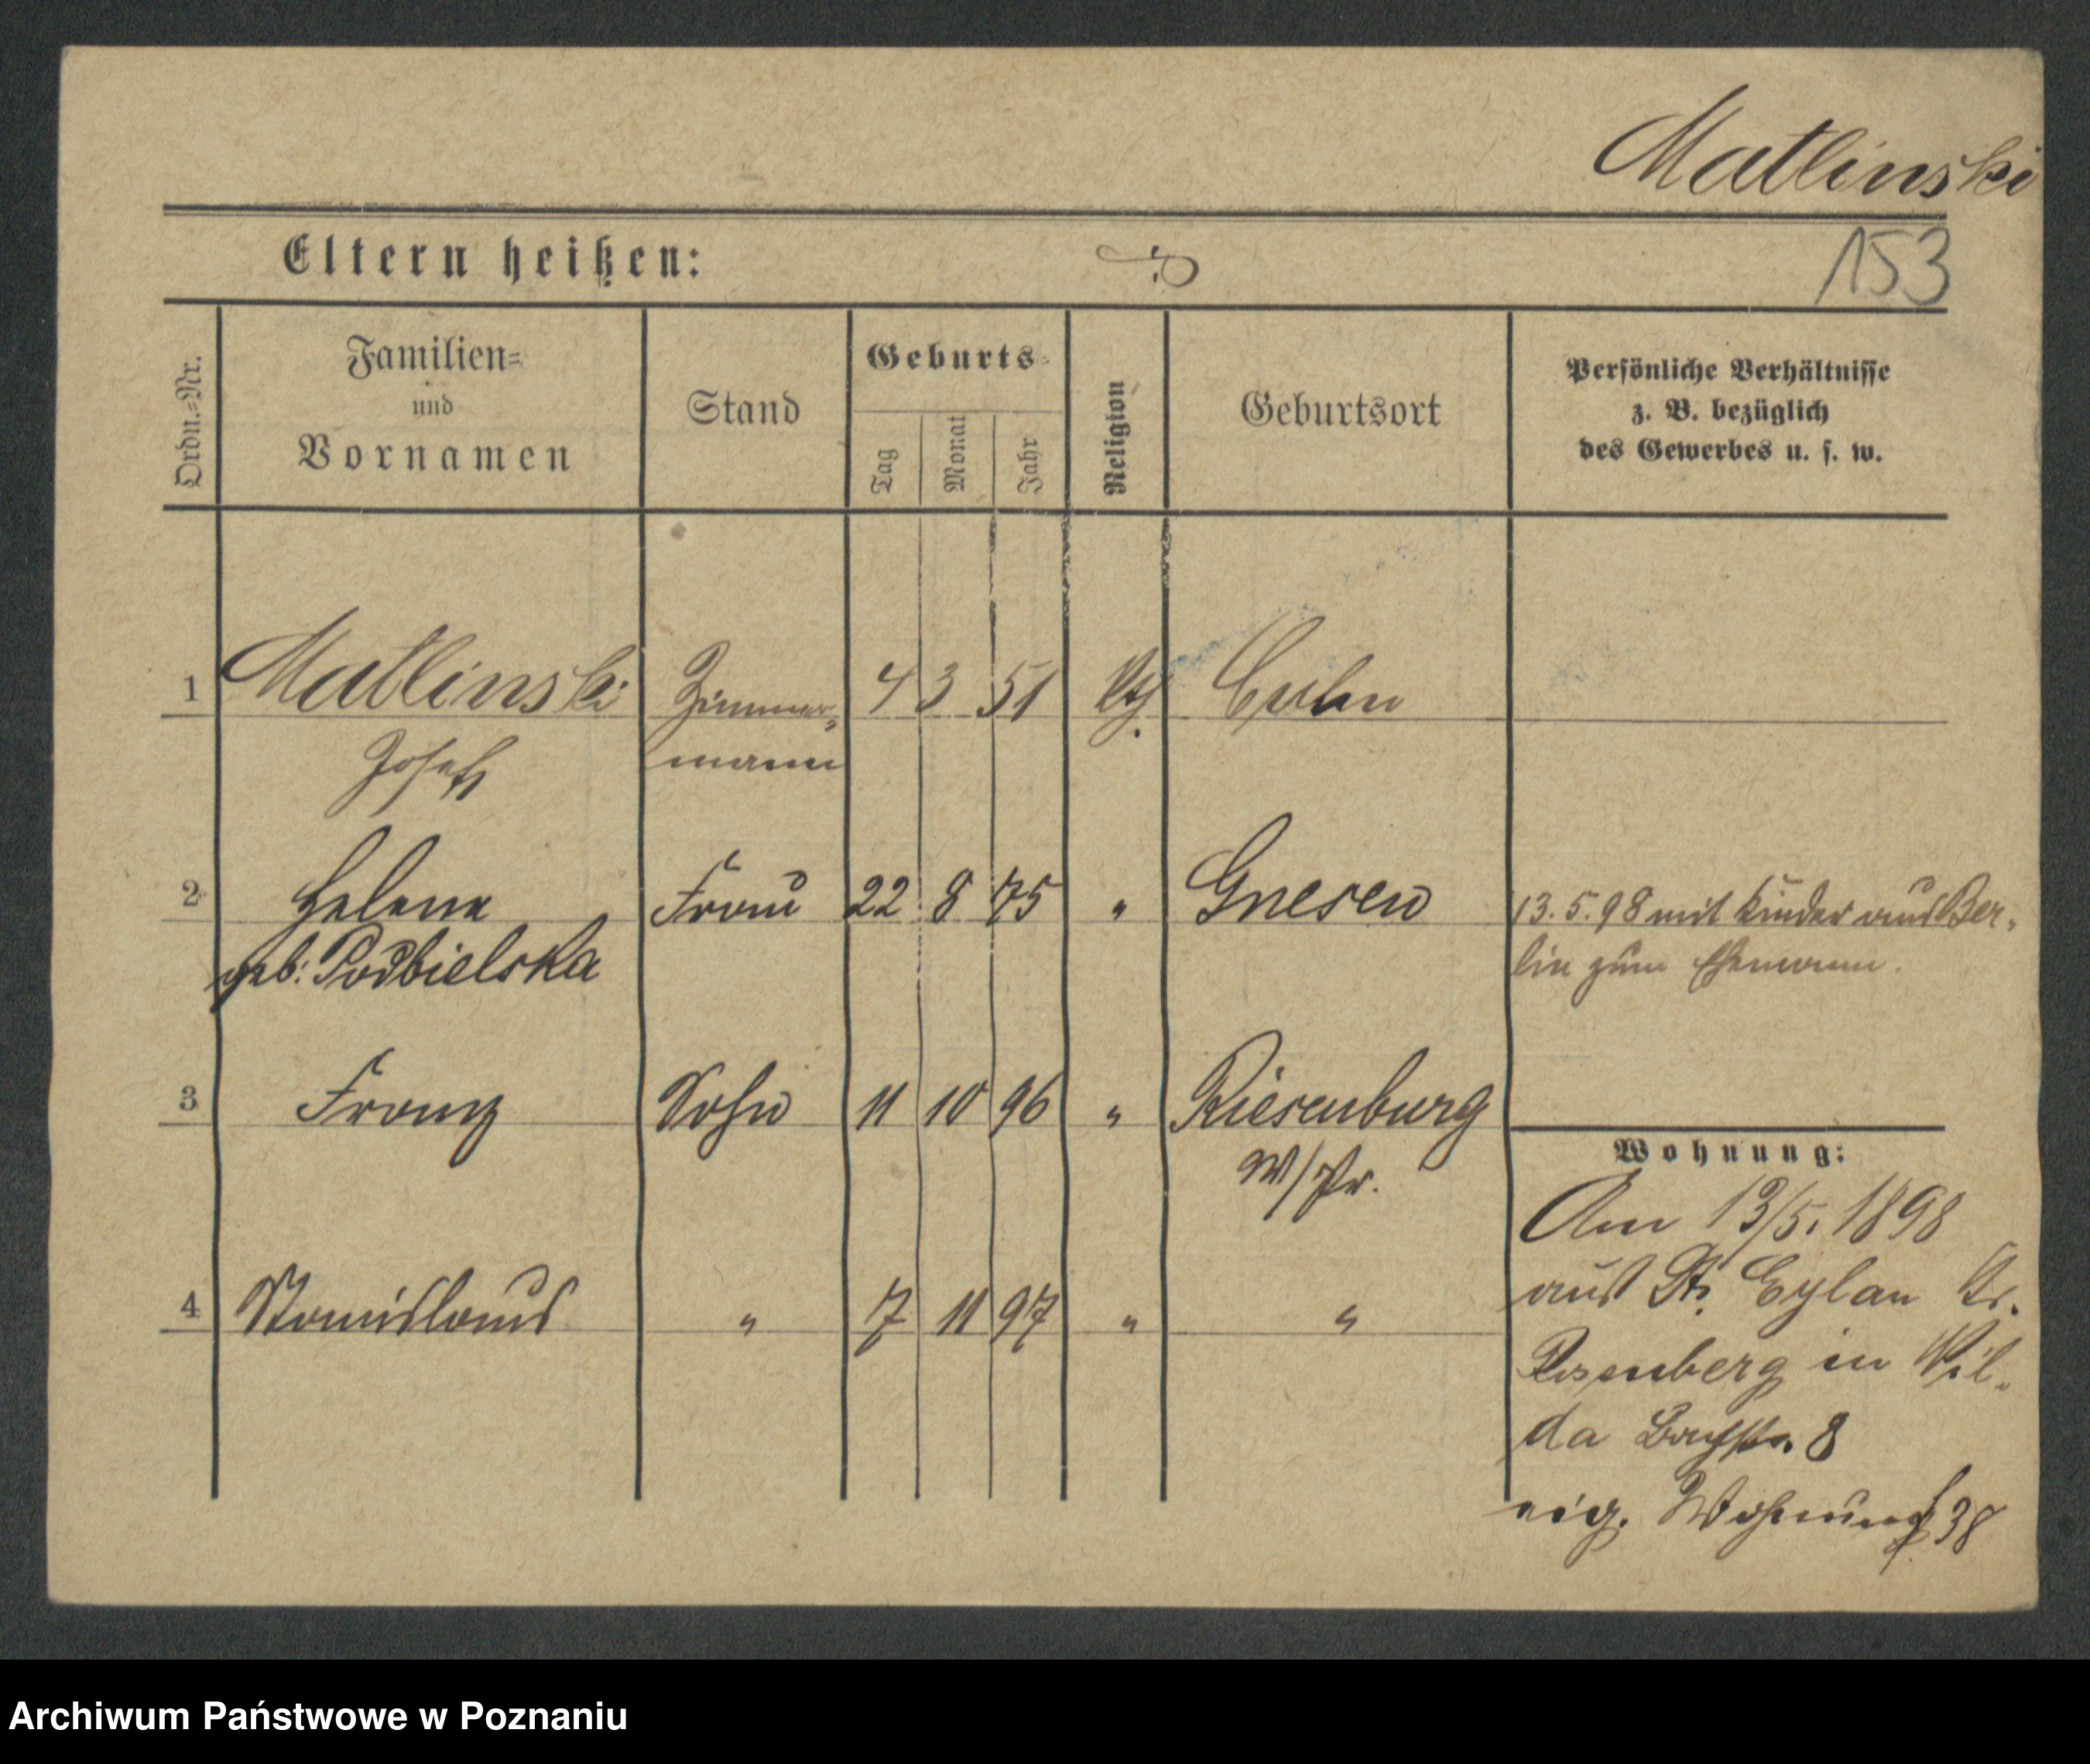 Matlinski
Eltern heißen:
153
Ordn.-Nr.
Familien-
und
Vornamen
Stand
Geburts-
Tag
Monat
Jahr
Religion
Geburtsort
Persönliche Verhältnisse
z. B. bezüglich
des Gewerbes u. s. w.
1 Matlinski Zimmer- 4 3 51 kth. Culm
Josef mann
2 Helene Frau 22 8 75 " Gnesen 13.5.98 mit Kinder aus Ber-
geb: Podbielska lin zum Ehemann.
3 Franz Sohn 11 10 96 " Riesenburg
W/Pr.
4 Stanislaus " 7 11 97 " "
Wohnung:
Am 13/5. 1898
aus Dt. Eylau Kr.
Rosenberg in Wil-
da Bachstr. 8
eig. Wohnung 38
Archiwum Państwowe w Poznaniu